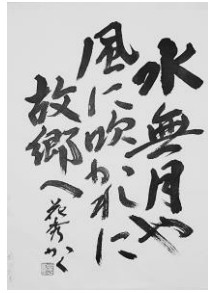 水無月や
風に吹かれに
故郷へ
花秀かく